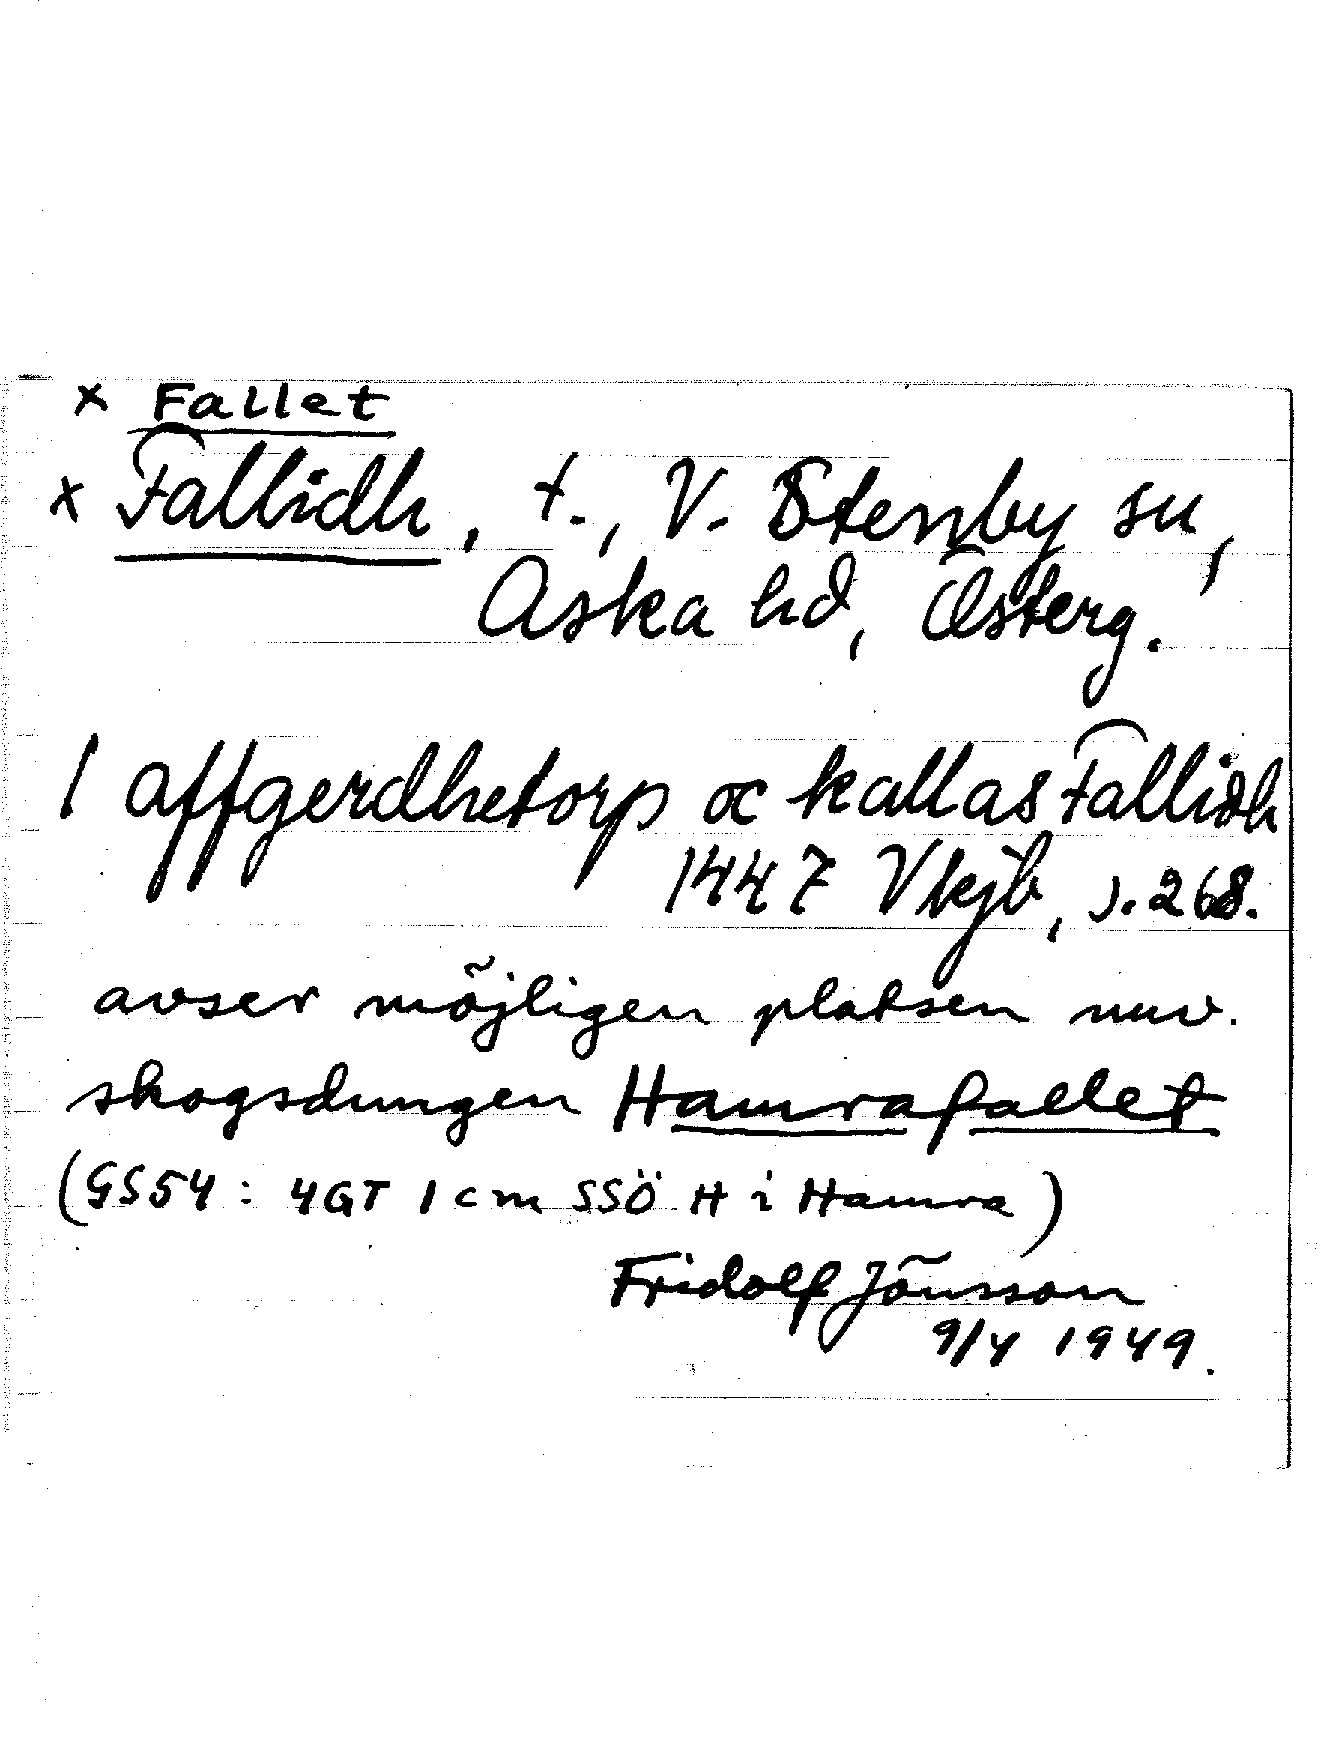 x Fallet
x Fallidh, t., V. Stenby sn,
Aska hd, Österg.
I affgerdhetorp oc kallas Fallidh
1447 Vkjb, s. 268.
avser möjligen platsen nuv.
skogsdungen Hamrafallet
(GS54: 4GT 1 cm SSÖ H i Hamra)
Fridolf Jönsson
9/4 1949.